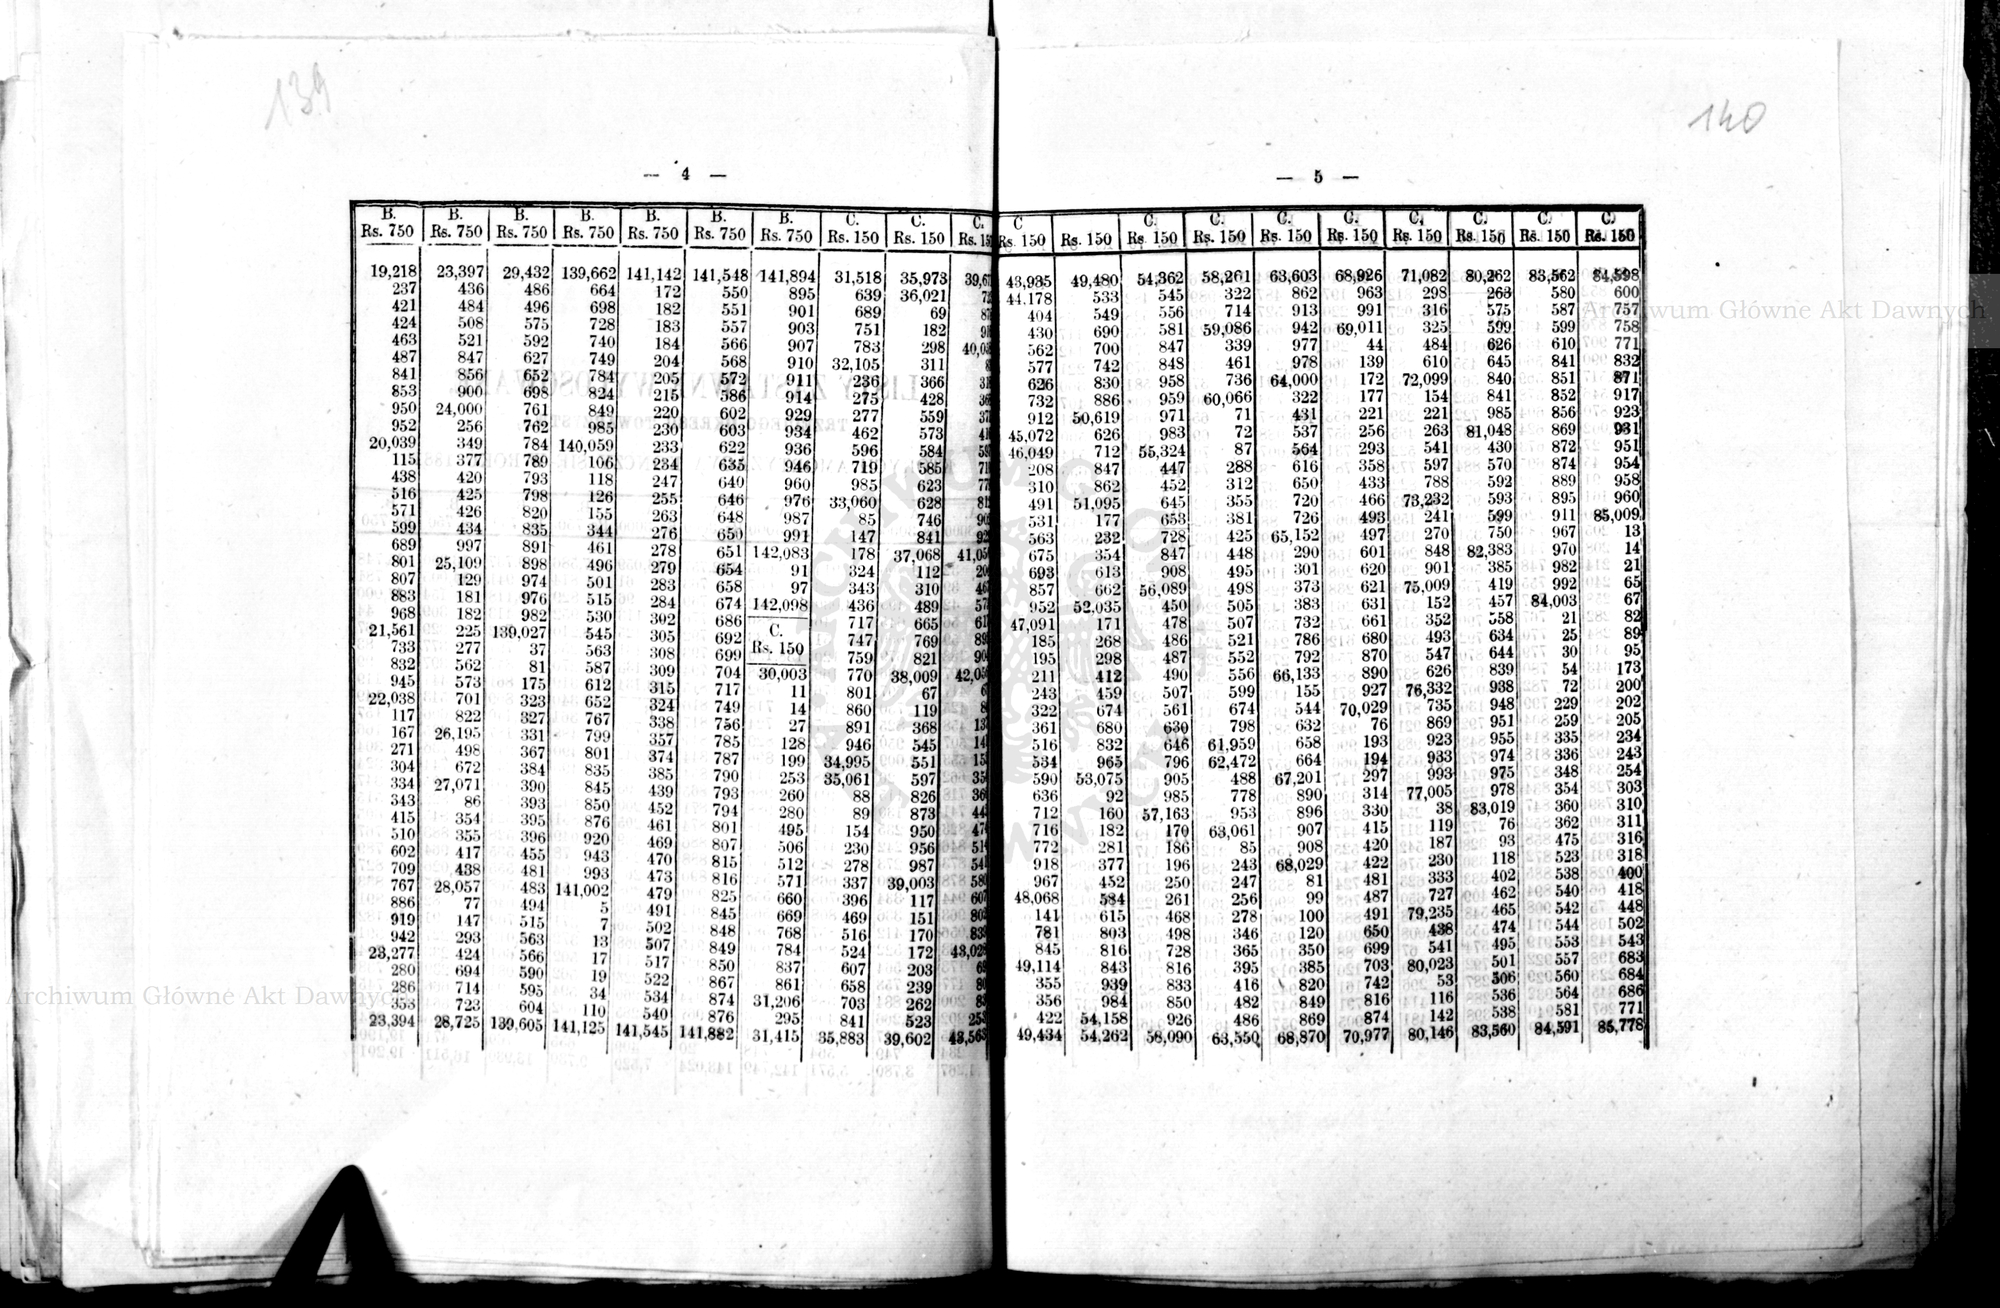 139
140
— 4 —
B.
Rs. 750
19,218
237
421
424
463
487
841
853
950
952
20,039
115
438
516
571
599
689
801
807
883
968
21,561
733
832
945
22,038
117
167
271
304
334
343
415
510
602
709
767
886
919
942
23,277
280
286
353
23,394
B.
Rs. 750
23,397
436
484
508
521
847
856
900
24,000
256
349
377
420
425
426
434
997
25,109
129
181
182
225
277
562
573
701
822
26,195
498
672
27,071
86
354
355
417
438
28,057
77
147
293
424
694
714
723
28,725
B.
Rs. 750
29,432
486
496
575
592
627
652
698
761
762
784
789
793
798
820
835
891
898
974
976
982
139,027
37
81
175
323
327
331
367
384
390
393
395
396
455
481
483
494
515
563
566
590
595
604
139,605
B.
Rs. 750
139,662
664
698
728
740
749
784
824
849
985
140,059
106
118
126
155
344
461
496
501
515
530
545
563
587
612
652
767
799
801
835
845
850
876
920
943
993
141,002
5
7
13
17
19
34
110
141,125
B.
Rs. 750
141,142
172
182
183
184
204
205
215
220
230
233
234
247
255
263
276
278
279
283
284
302
305
308
309
315
324
338
357
374
385
439
452
461
469
470
473
479
491
502
507
517
522
534
540
141,545
B.
Rs. 750
141,548
550
551
557
566
568
572
586
602
603
622
635
640
646
648
650
651
654
658
674
686
692
699
704
717
749
756
785
787
790
793
794
801
807
815
816
825
845
848
849
850
867
874
876
141,882
B.
Rs. 750
141,894
895
901
903
907
910
911
914
929
934
936
946
960
976
987
991
142,083
91
97
142,098
C.
Rs. 150
30,003
11
14
27
128
199
253
260
280
495
506
512
571
660
669
768
784
837
861
31,206
295
31,415
C.
Rs. 150
31,518
639
689
751
783
32,105
236
275
277
462
596
719
985
33,060
85
147
178
324
343
436
717
747
759
770
801
860
891
946
34,995
35,061
88
89
154
230
278
337
396
469
516
524
607
658
703
841
35,883
C.
Rs. 150
35,973
36,021
69
182
298
311
366
428
559
573
584
585
623
628
746
841
37,068
112
310
489
665
769
821
38,009
67
119
368
545
551
597
826
873
950
956
987
39,003
117
151
170
172
203
239
262
523
39,602
C.
— 5 —
C
Rs. 150
43,935
44.178
404
430
562
577
626
732
912
45,072
46,049
208
310
491
531
563
675
693
857
952
47,091
185
195
211
243
322
361
516
534
590
636
712
716
772
918
967
48,068
141
781
845
49,114
355
356
422
49,434
Rs. 150
49,480
533
549
690
700
742
830
886
50,619
626
712
847
862
51,095
177
232
354
613
662
52,035
171
268
298
412
459
674
680
832
965
53,075
92
160
182
281
377
452
584
615
803
816
843
939
984
54,158
54,262
C.
Rs. 150
54,362
545
556
581
847
848
958
959
971
983
55,324
447
452
645
653
728
847
908
56,089
450
478
486
487
490
507
561
630
646
796
905
985
57,163
170
186
196
250
261
468
498
728
816
833
850
926
58,090
C.
Rs. 150
58,261
322
714
59,086
339
461
736
60,066
71
72
87
288
312
355
381
425
448
495
498
505
507
521
552
556
599
674
798
61,959
62,472
488
778
953
63,061
85
243
247
256
278
346
365
395
416
482
486
63,550
C.
Rs. 150
63,603
862
913
942
977
978
64,000
322
431
537
564
616
650
720
726
65,152
290
301
373
383
732
786
792
66,133
155
544
632
658
664
67,201
890
896
907
908
68,029
81
99
100
120
350
385
820
849
869
68,870
C.
Rs. 150
68,926
963
991
69,011
44
139
172
177
221
256
293
358
433
466
493
497
601
620
621
631
661
680
870
890
927
70,029
76
193
194
297
314
330
415
420
422
481
487
491
650
699
703
742
816
874
70,977
C.
Rs. 150
71,082
298
316
325
484
610
72,099
154
221
263
541
597
788
73,232
241
270
848
901
75,009
152
352
493
547
626
76,332
735
869
923
933
993
77,005
38
119
187
230
333
727
79,235
438
541
80,023
53
116
142
80,146
C.
Rs. 150
80,262
263
575
599
626
645
840
841
985
81,048
430
570
592
593
599
750
82,383
385
419
457
558
634
644
839
938
948
951
955
974
975
978
83,019
76
93
118
402
462
465
474
495
501
506
536
538
83,560
C.
Rs. 150
83,562
580
587
599
610
841
851
852
856
869
872
874
889
895
911
967
970
982
992
84,003
21
25
30
54
72
229
259
335
336
348
354
360
362
475
523
538
540
542
544
553
557
560
564
581
84,591
C.
Rs. 150
84,598
600
757
758
771
832
871
917
923
931
951
954
958
960
85,009
13
14
21
65
67
82
89
95
173
200
202
205
234
243
254
303
310
311
316
318
400
418
448
502
543
683
684
686
771
85,778
Archiwum Główne Akt Dawnych
Archiwum Główne Akt Dawnych